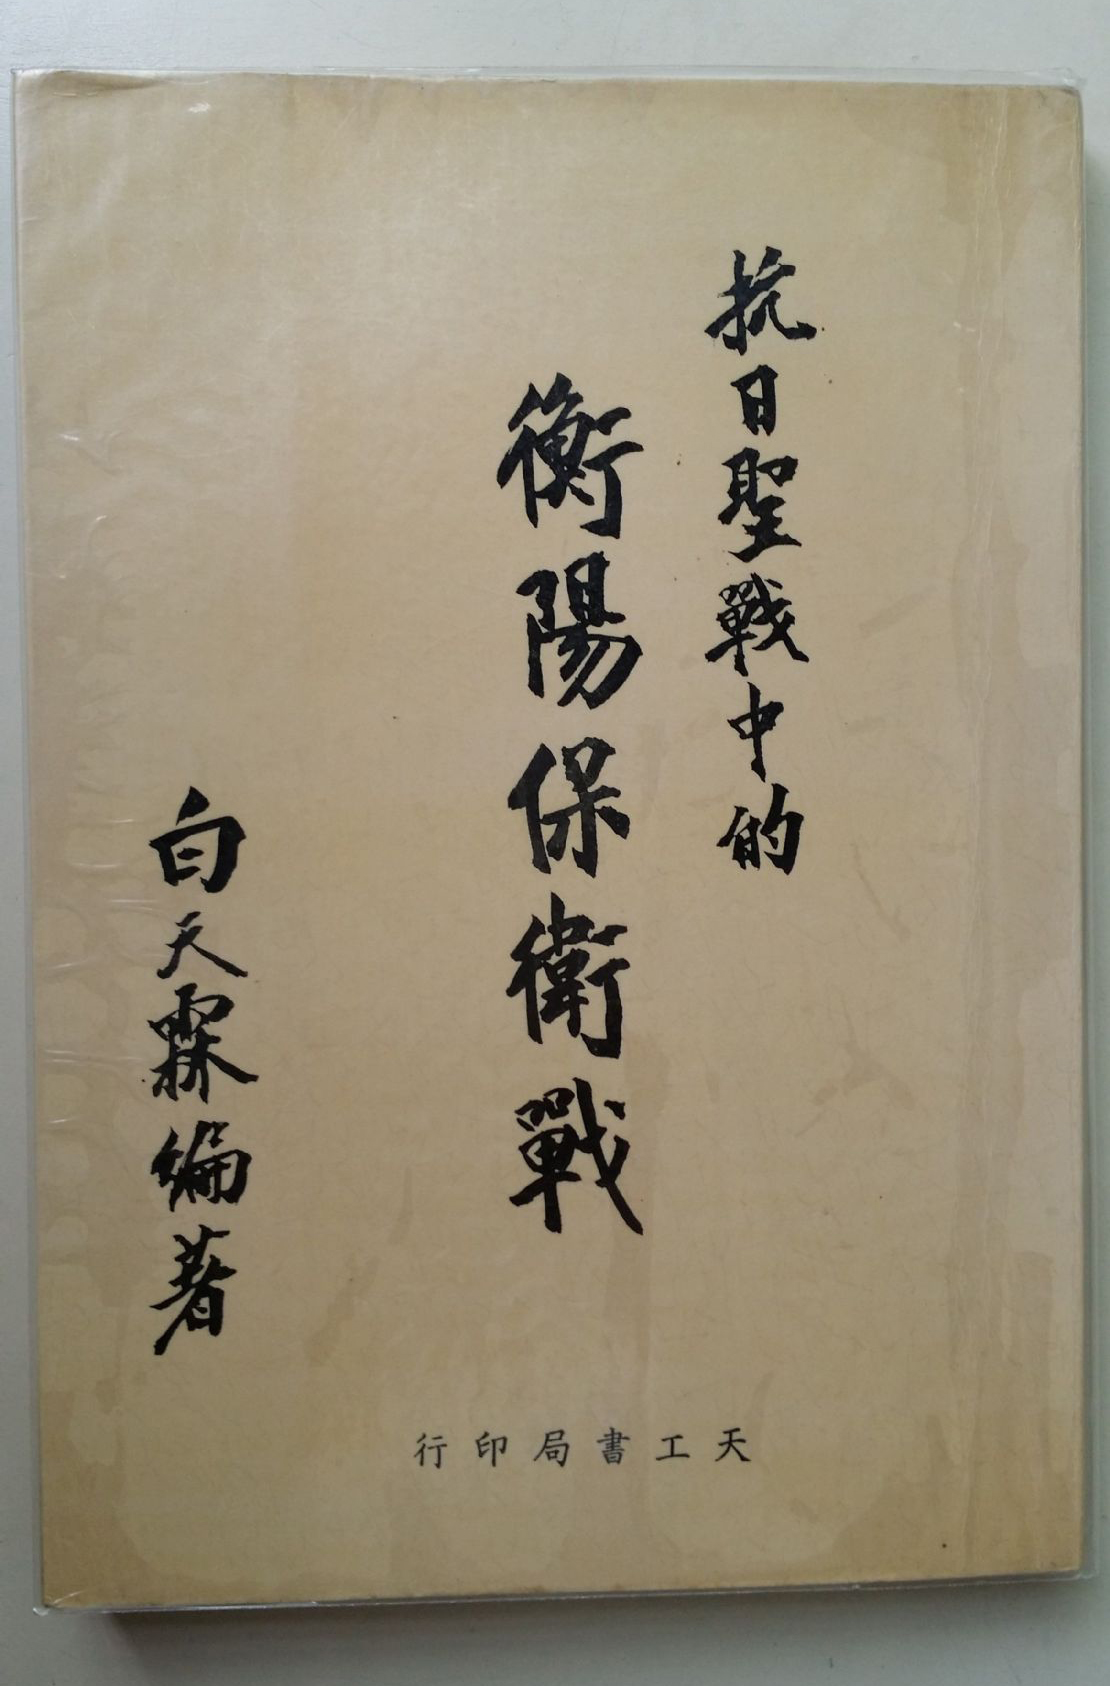 抗日聖戰中的
衡陽保衛戰
白天霖編著
天工書局印行